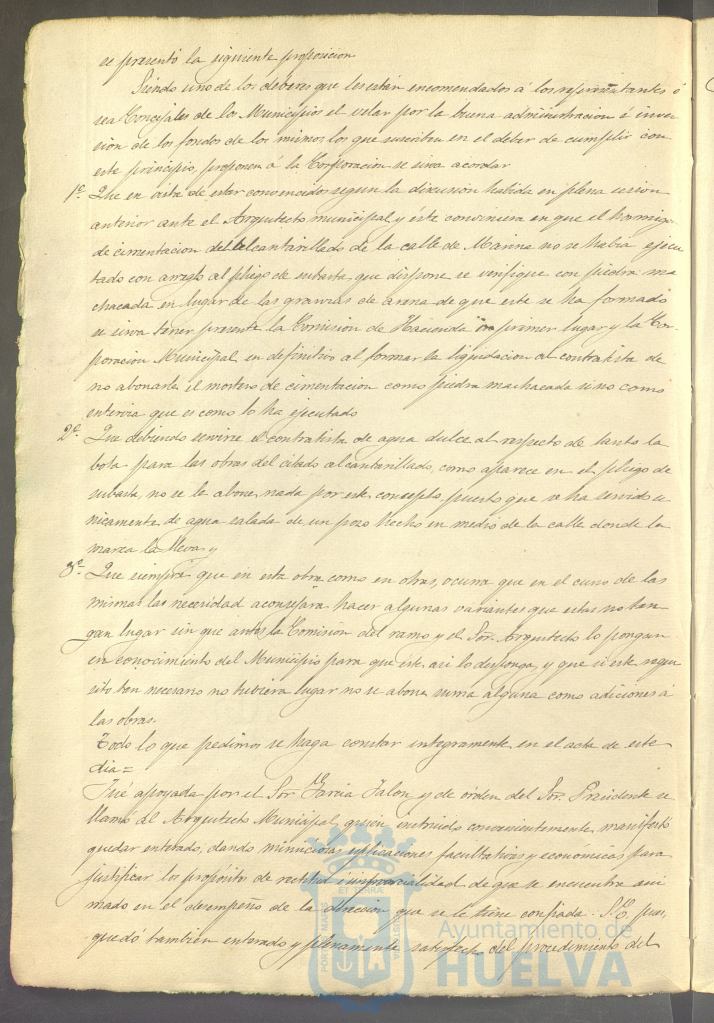 se presentó la siguiente proposicion
Siendo uno de los deberes que les están encomendados á los representantes ó
sea Concejales de los Municipios el velar por la buena administracion é inver
sion de los fondos de los mismos los que suscriben en el deber de cumplir con
este principio, proponen á la Corporacion se sirva acordar
1º Que en vista de estar convencidos segun la discusion habida en plena sesion
anterior ante el Arquitecto municipal y éste conviniera en que el hormigon
de cimentacion del alcantarillado de la calle de Marina no se habia ejecu
tado con arreglo al pliego de subasta que dispone se verifique con piedra ma
chacada en lugar de las granzas de arena de que este se ha formado
se sirva tener presente la Comision de Hacienda en primer lugar y la Cor-
poracion Municipal en definitivo al formar la liquidacion al contratista de
no abonarle el mortero de cimentacion como piedra machacada sino como
que es como lo ha ejecutado
2º Que debiendo servirse el contratista de agua dulce al respecto de tanto la
bota para las obras del citado alcantarillado, como aparece en el pliego de
subasta, no se le abone nada por este concepto, puesto que se ha servido u
nicamente de agua salada de un pozo hecho en medio de la calle donde la
marea la lleva, y
3º Que siempre que en esta obra como en otras, ocurra que en el curso de las
mismas la necesidad aconsejara hacer algunas variantes que estas no ten
gan lugar sin que antes la Comision del ramo y el Sor. Arquitecto lo pongan
en conocimiento del Municipio para que éste asi lo disponga, y que si este requi
sito tan necesario no tubiera lugar no se abone suma alguna como adiciones á
las obras.
Todo lo que pedimos se haga constar integramente en el acta de este
dia =
Fue apoyada por el Sor. Garcia Jalon y de orden del Sor. Presidente se
llamó al Arquitecto Municipal, quien instruido convenientemente, manifestó
quedar enterado, dando minuciosas esplicaciones facultativas y económicas para
justificar los propósitos de rectitud é imparcialidad de que se encuentra ani
mado en el desempeño de la direccion que se le tiene confiada. S.E. pues,
quedó tambien enterado y plenamente satisfecho del procedimiento del
PORTUS MARIS
ET TERRÆ
CUSTODIA
Ayuntamiento de
HUELVA